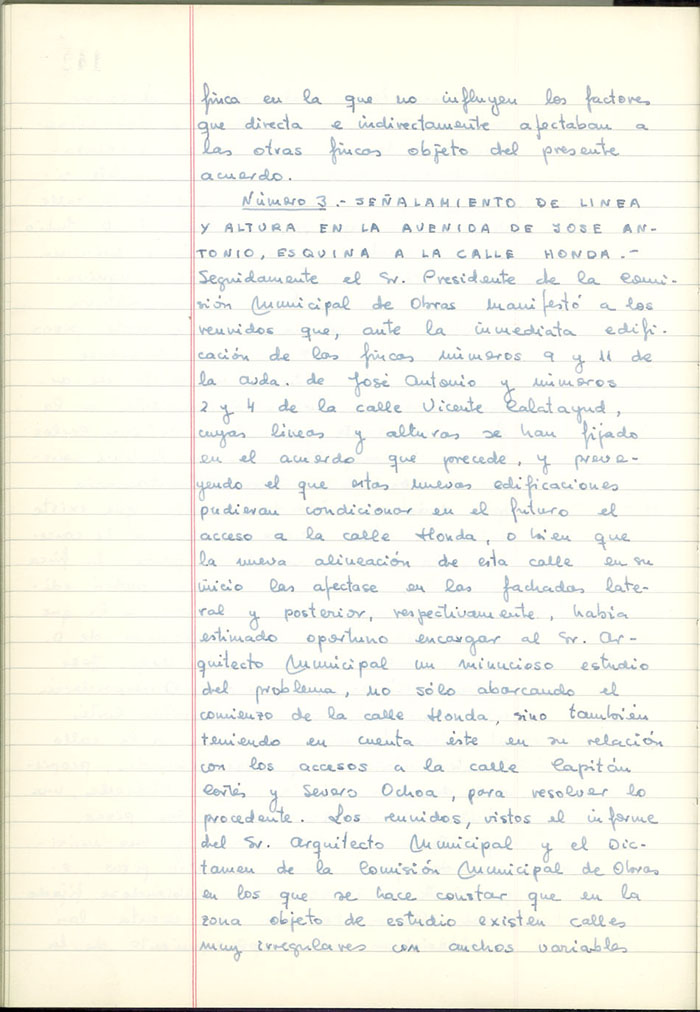 finca en la que no influyen los factores
que directa e indirectamente afectaban a
las otras fincas objeto del presente
acuerdo.
Número 3.- SEÑALAMIENTO DE LINEA
Y ALTURA EN LA AVENIDA DE JOSE AN-
TONIO, ESQUINA A LA CALLE HONDA.-
Seguidamente el Sr. Presidente de la Comi-
sión Municipal de Obras manifestó a los
reunidos que, ante la inmediata edifi-
cación de las fincas números 9 y 11 de
la avda. de José Antonio y números
2 y 4 de la calle Vicente Calatayud,
cuyas lineas y alturas se han fijado
en el acuerdo que precede, y preve-
yendo el que estas nuevas edificaciones
pudieran condicionar en el futuro el
acceso a la calle Honda, o bien que
la nueva alineación de esta calle en su
inicio las afectase en las fachadas late-
ral y posterior, respectivamente, había
estimado oportuno encargar al Sr. Ar-
quitecto Municipal un minucioso estudio
del problema, no sólo abarcando el
comienzo de la calle Honda, sino también
teniendo en cuenta éste en su relación
con los accesos a la calle Capitán
Cortés y Severo Ochoa, para resolver lo
procedente. Los reunidos, vistos el informe
del Sr. Arquitecto Municipal y el Dic-
tamen de la Comisión Municipal de Obras
en los que se hace constar que en la
zona objeto de estudio existen calles
muy irregulares con anchos variables